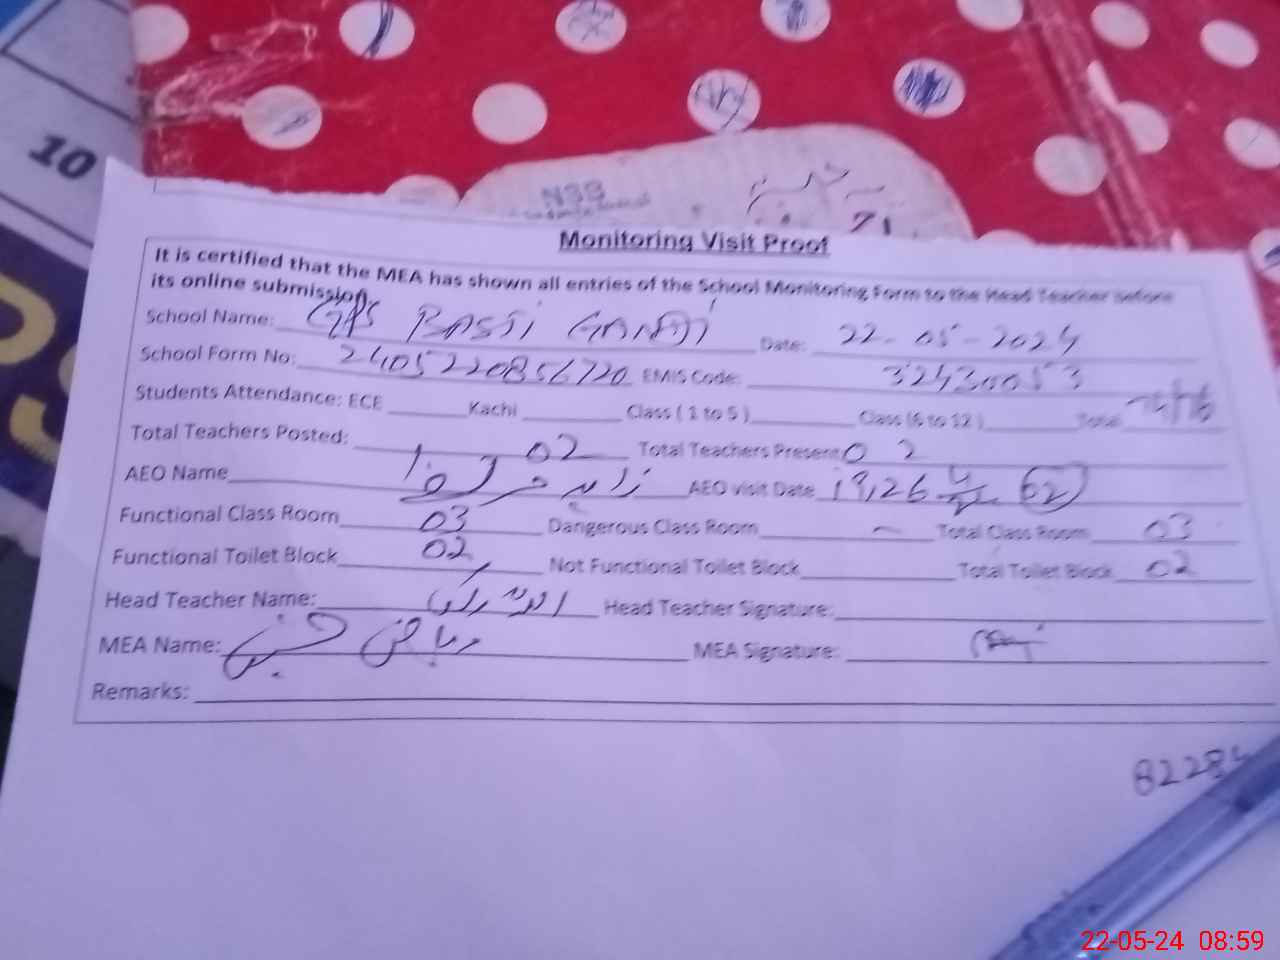 10
NSB
Monitoring Visit Proof
It is certified that the MEA has shown all entries of the School Monitoring Form to the Head Teacher before
its online submission.
School Name: GPS BASTI Date: 22-05-2024
School Form No: 2405220856720 EMIS Code: 32430053
Students Attendance: ECE Kachi Class ( 1 to 5 ) Class (6 to 12 ) Total
Total Teachers Posted: 02 Total Teachers Present 02
AEO Name AEO visit Date 19,26
Functional Class Room 03 Dangerous Class Room - Total Class Room 03
Functional Toilet Block 02 Not Functional Toilet Block Total Toilet Block 02
Head Teacher Name: Head Teacher Signature:
MEA Name: ریاض حسین MEA Signature:
Remarks:
22-05-24 08:59